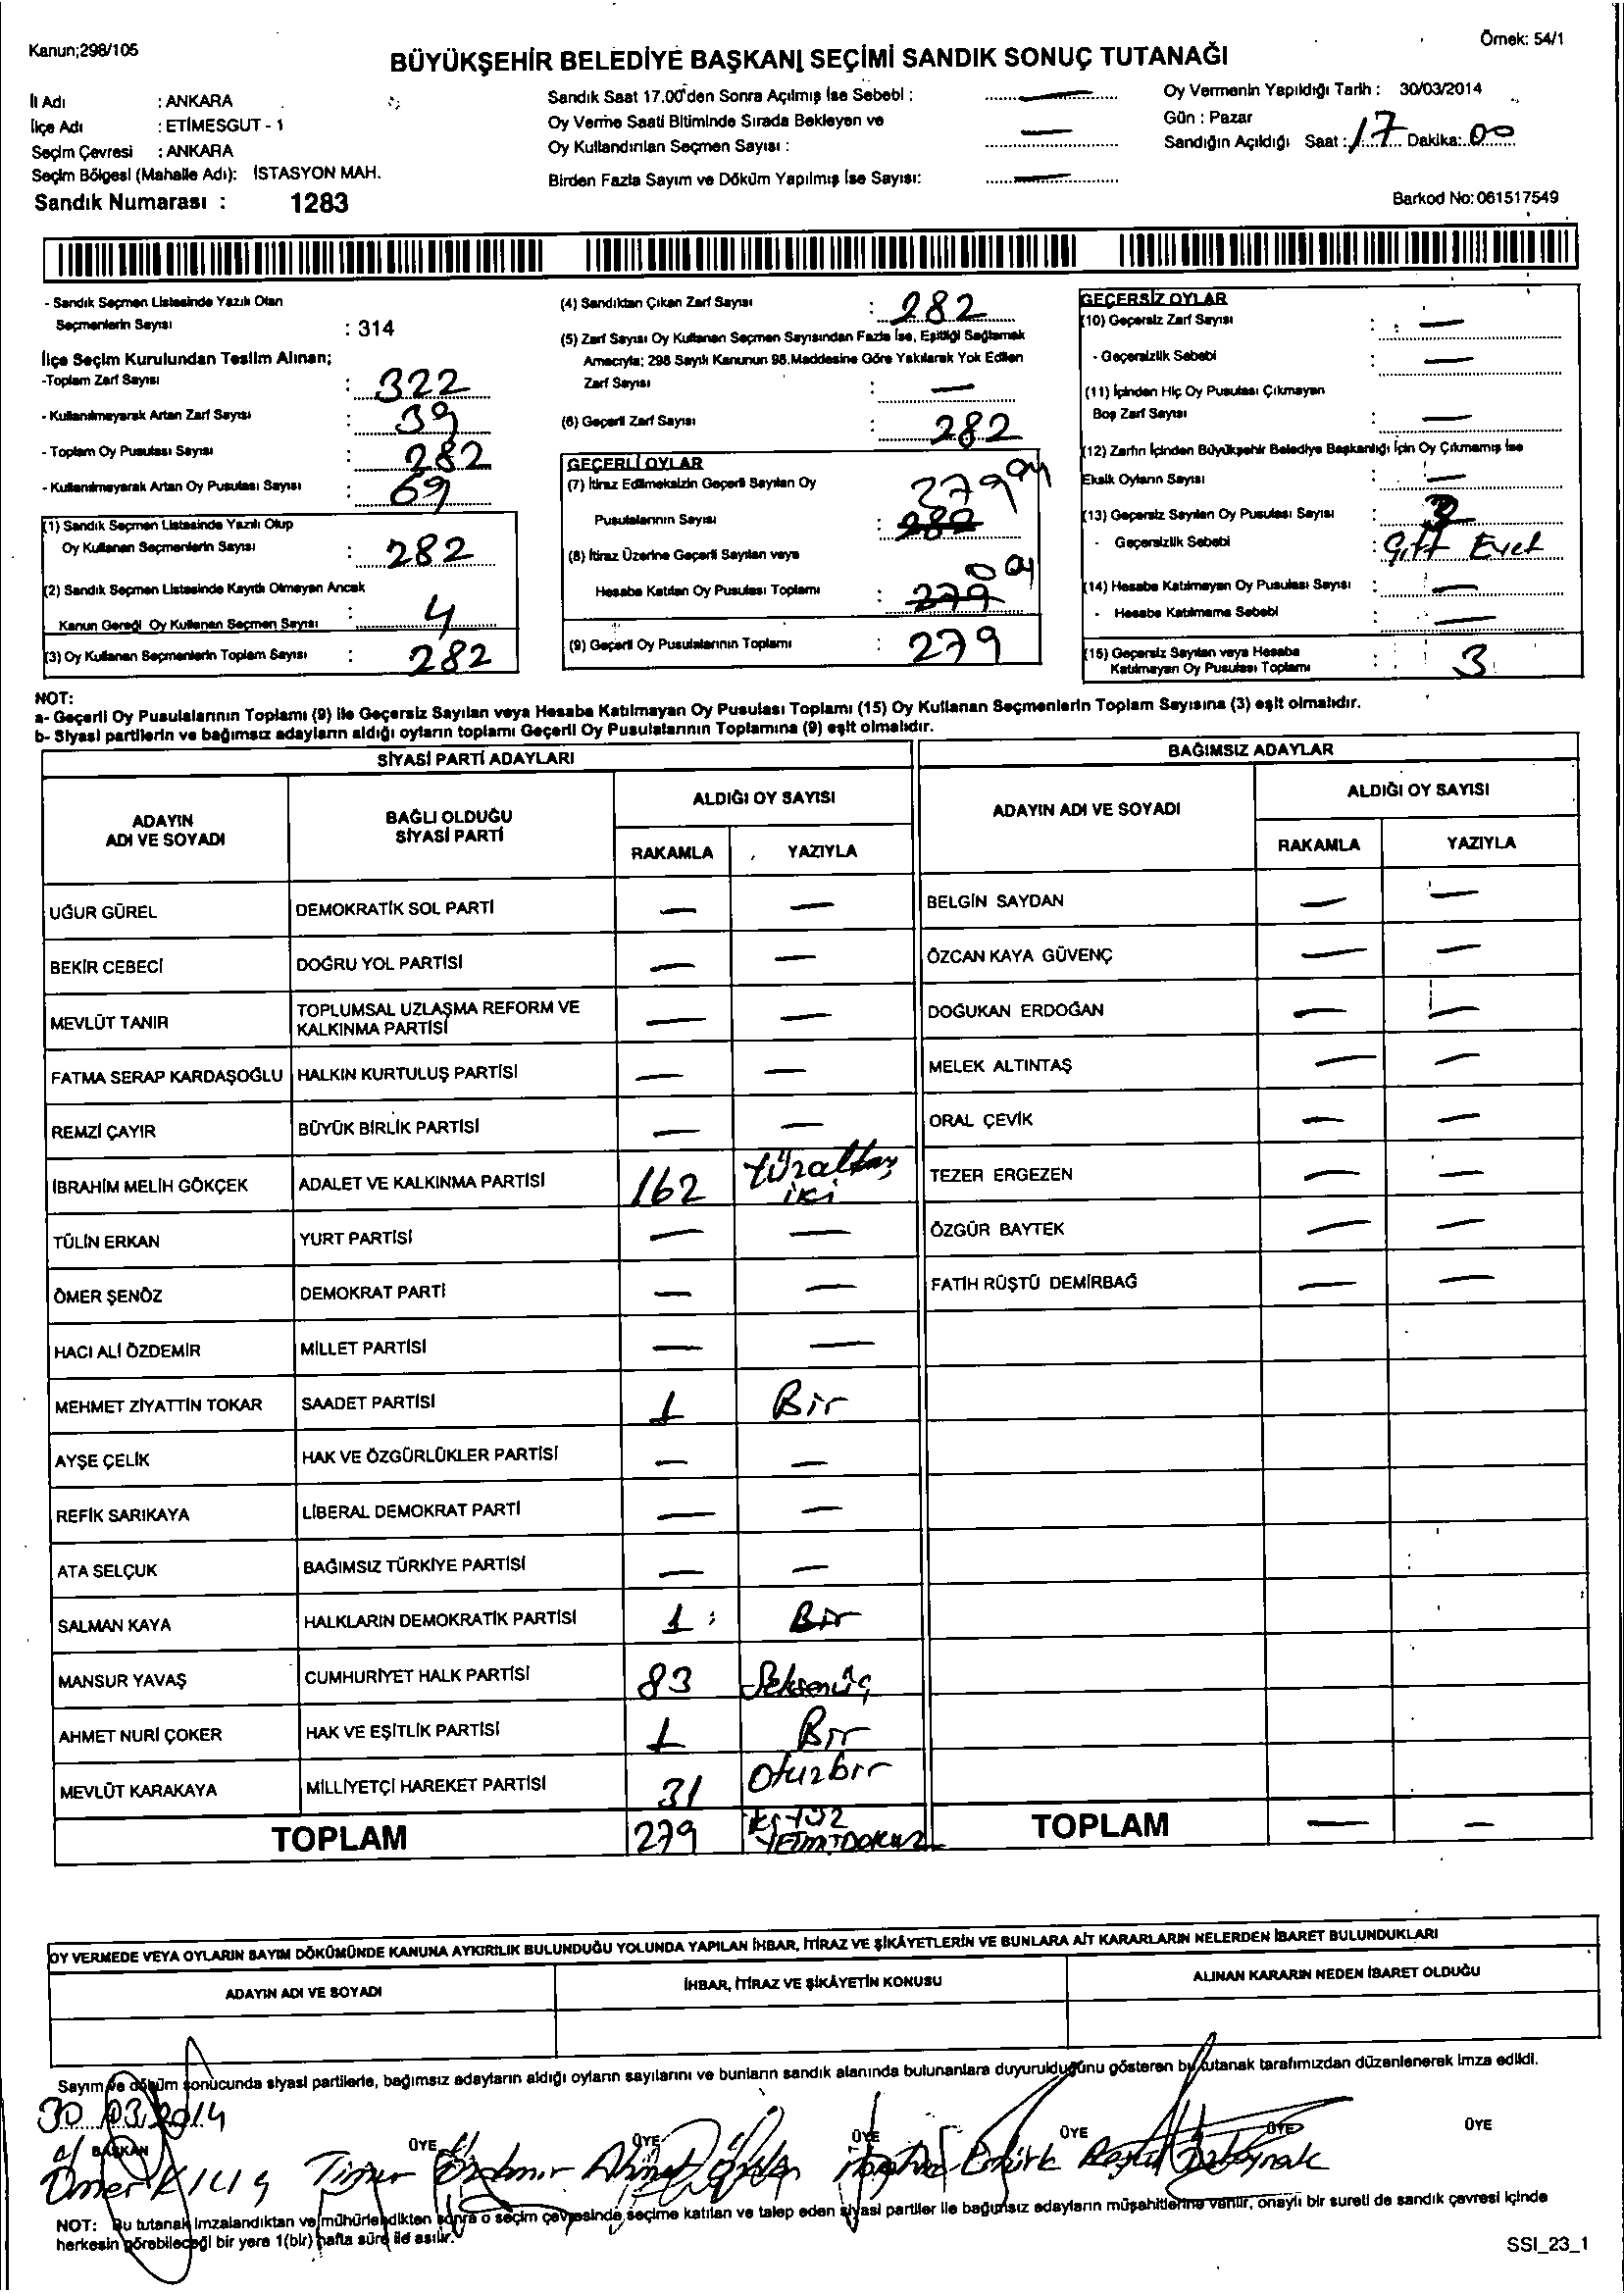 Kanun;298/105
Örnek: 54/1
BÜYÜKŞEHİR BELEDİYE BAŞKANI SEÇİMİ SANDIK SONUÇ TUTANAĞI
İl Adı : ANKARA
İlçe Adı : ETİMESGUT - 1
Seçim Çevresi : ANKARA
Seçim Bölgesi (Mahalle Adı): İSTASYON MAH.
Sandık Numarası : 1283
Sandık Saat 17.00'den Sonra Açılmış İse Sebebi : —
Oy Verme Saati Bitiminde Sırada Bekleyen ve —
Oy Kullandırılan Seçmen Sayısı :
Birden Fazla Sayım ve Döküm Yapılmış İse Sayısı: —
Oy Vermenin Yapıldığı Tarih : 30/03/2014
Gün : Pazar
Sandığın Açıldığı Saat : 17 Dakika: 00
Barkod No: 061517549
- Sandık Seçmen Listesinde Yazılı Olan
Seçmenlerin Sayısı : 314
İlçe Seçim Kurulundan Teslim Alınan;
-Toplam Zarf Sayısı : 322
- Kullanılmayarak Artan Zarf Sayısı : 39
- Toplam Oy Pusulası Sayısı : 282
- Kullanılmayarak Artan Oy Pusulası Sayısı : 69
(1) Sandık Seçmen Listesinde Yazılı Olup
Oy Kullanan Seçmenlerin Sayısı : 282
(2) Sandık Seçmen Listesinde Kayıtlı Olmayan Ancak
Kanun Gereği Oy Kullanan Seçmen Sayısı : 4
(3) Oy Kullanan Seçmenlerin Toplam Sayısı : 282
(4) Sandıktan Çıkan Zarf Sayısı : 282
(5) Zarf Sayısı Oy Kullanan Seçmen Sayısından Fazla İse, Eşitliği Sağlamak
Amacıyla; 298 Sayılı Kanunun 98.Maddesine Göre Yakılarak Yok Edilen
Zarf Sayısı : —
(6) Geçerli Zarf Sayısı : 282
GEÇERLİ OYLAR
(7) İtiraz Edilmeksizin Geçerli Sayılan Oy 279 oy
Pusulalarının Sayısı : 282
(8) İtiraz Üzerine Geçerli Sayılan veya 0 oy
Hesaba Katılan Oy Pusulası Toplamı : 279
(9) Geçerli Oy Pusulalarının Toplamı : 279
GEÇERSİZ OYLAR
(10) Geçersiz Zarf Sayısı : —
- Geçersizlik Sebebi : —
(11) İçinden Hiç Oy Pusulası Çıkmayan
Boş Zarf Sayısı : —
(12) Zarfın İçinden Büyükşehir Belediye Başkanlığı İçin Oy Çıkmamış İse
Eksik Oyların Sayısı : —
(13) Geçersiz Sayılan Oy Pusulası Sayısı : 3
- Geçersizlik Sebebi : Çift Evet
(14) Hesaba Katılmayan Oy Pusulası Sayısı : —
- Hesaba Katılmama Sebebi : —
(15) Geçersiz Sayılan veya Hesaba
Katılmayan Oy Pusulası Toplamı : 3
NOT:
a- Geçerli Oy Pusulalarının Toplamı (9) ile Geçersiz Sayılan veya Hesaba Katılmayan Oy Pusulası Toplamı (15) Oy Kullanan Seçmenlerin Toplam Sayısına (3) eşit olmalıdır.
b- Siyasi partilerin ve bağımsız adayların aldığı oyların toplamı Geçerli Oy Pusulalarının Toplamına (9) eşit olmalıdır.
SİYASİ PARTİ ADAYLARI
BAĞIMSIZ ADAYLAR
ADAYIN ADI VE SOYADI
BAĞLI OLDUĞU SİYASİ PARTİ
ALDIĞI OY SAYISI
RAKAMLA YAZIYLA
ADAYIN ADI VE SOYADI
ALDIĞI OY SAYISI
RAKAMLA YAZIYLA
UĞUR GÜREL DEMOKRATİK SOL PARTİ — — BELGİN SAYDAN — —
BEKİR CEBECİ DOĞRU YOL PARTİSİ — — ÖZCAN KAYA GÜVENÇ — —
MEVLÜT TANIR TOPLUMSAL UZLAŞMA REFORM VE KALKINMA PARTİSİ — — DOĞUKAN ERDOĞAN — —
FATMA SERAP KARDAŞOĞLU HALKIN KURTULUŞ PARTİSİ — — MELEK ALTINTAŞ — —
REMZİ ÇAYIR BÜYÜK BİRLİK PARTİSİ — — ORAL ÇEVİK — —
İBRAHİM MELİH GÖKÇEK ADALET VE KALKINMA PARTİSİ 162 Yüzaltmış iki TEZER ERGEZEN — —
TÜLİN ERKAN YURT PARTİSİ — — ÖZGÜR BAYTEK — —
ÖMER ŞENÖZ DEMOKRAT PARTİ — — FATİH RÜŞTÜ DEMİRBAĞ — —
HACI ALİ ÖZDEMİR MİLLET PARTİSİ — —
MEHMET ZİYATTİN TOKAR SAADET PARTİSİ 1 Bir
AYŞE ÇELİK HAK VE ÖZGÜRLÜKLER PARTİSİ — —
REFİK SARIKAYA LİBERAL DEMOKRAT PARTİ — —
ATA SELÇUK BAĞIMSIZ TÜRKİYE PARTİSİ — —
SALMAN KAYA HALKLARIN DEMOKRATİK PARTİSİ 1 Bir
MANSUR YAVAŞ CUMHURİYET HALK PARTİSİ 83 Seksenüç
AHMET NURİ ÇOKER HAK VE EŞİTLİK PARTİSİ 1 Bir
MEVLÜT KARAKAYA MİLLİYETÇİ HAREKET PARTİSİ 31 Otuzbir
TOPLAM 279 TOPLAM — —
OY VERMEDE VEYA OYLARIN SAYIM DÖKÜMÜNDE KANUNA AYKIRILIK BULUNDUĞU YOLUNDA YAPILAN İHBAR, İTİRAZ VE ŞİKÂYETLERİN VE BUNLARA AİT KARARLARIN NELERDEN İBARET BULUNDUKLARI
ADAYIN ADI VE SOYADI
İHBAR, İTİRAZ VE ŞİKÂYETİN KONUSU
ALINAN KARARIN NEDEN İBARET OLDUĞU
Sayım ve döküm sonucunda siyasi partilerle, bağımsız adayların aldığı oyların sayılarını ve bunların sandık alanında bulunanlara duyurulduğunu gösteren bu tutanak tarafımızdan düzenlenerek imza edildi.
30.03.2014
BAŞKAN ÜYE ÜYE ÜYE ÜYE ÜYE ÜYE
Ömer KILIÇ Timur Özdemir Ahmet
NOT: Bu tutanak imzalandıktan ve mühürlendikten sonra o seçim çevresinde seçime katılan ve talep eden siyasi partiler ile bağımsız adayların müşahitlerine verilir, onaylı bir sureti de sandık çevresi içinde
herkesin görebileceği bir yere 1(bir) hafta süre ile asılır.
SSI_23_1